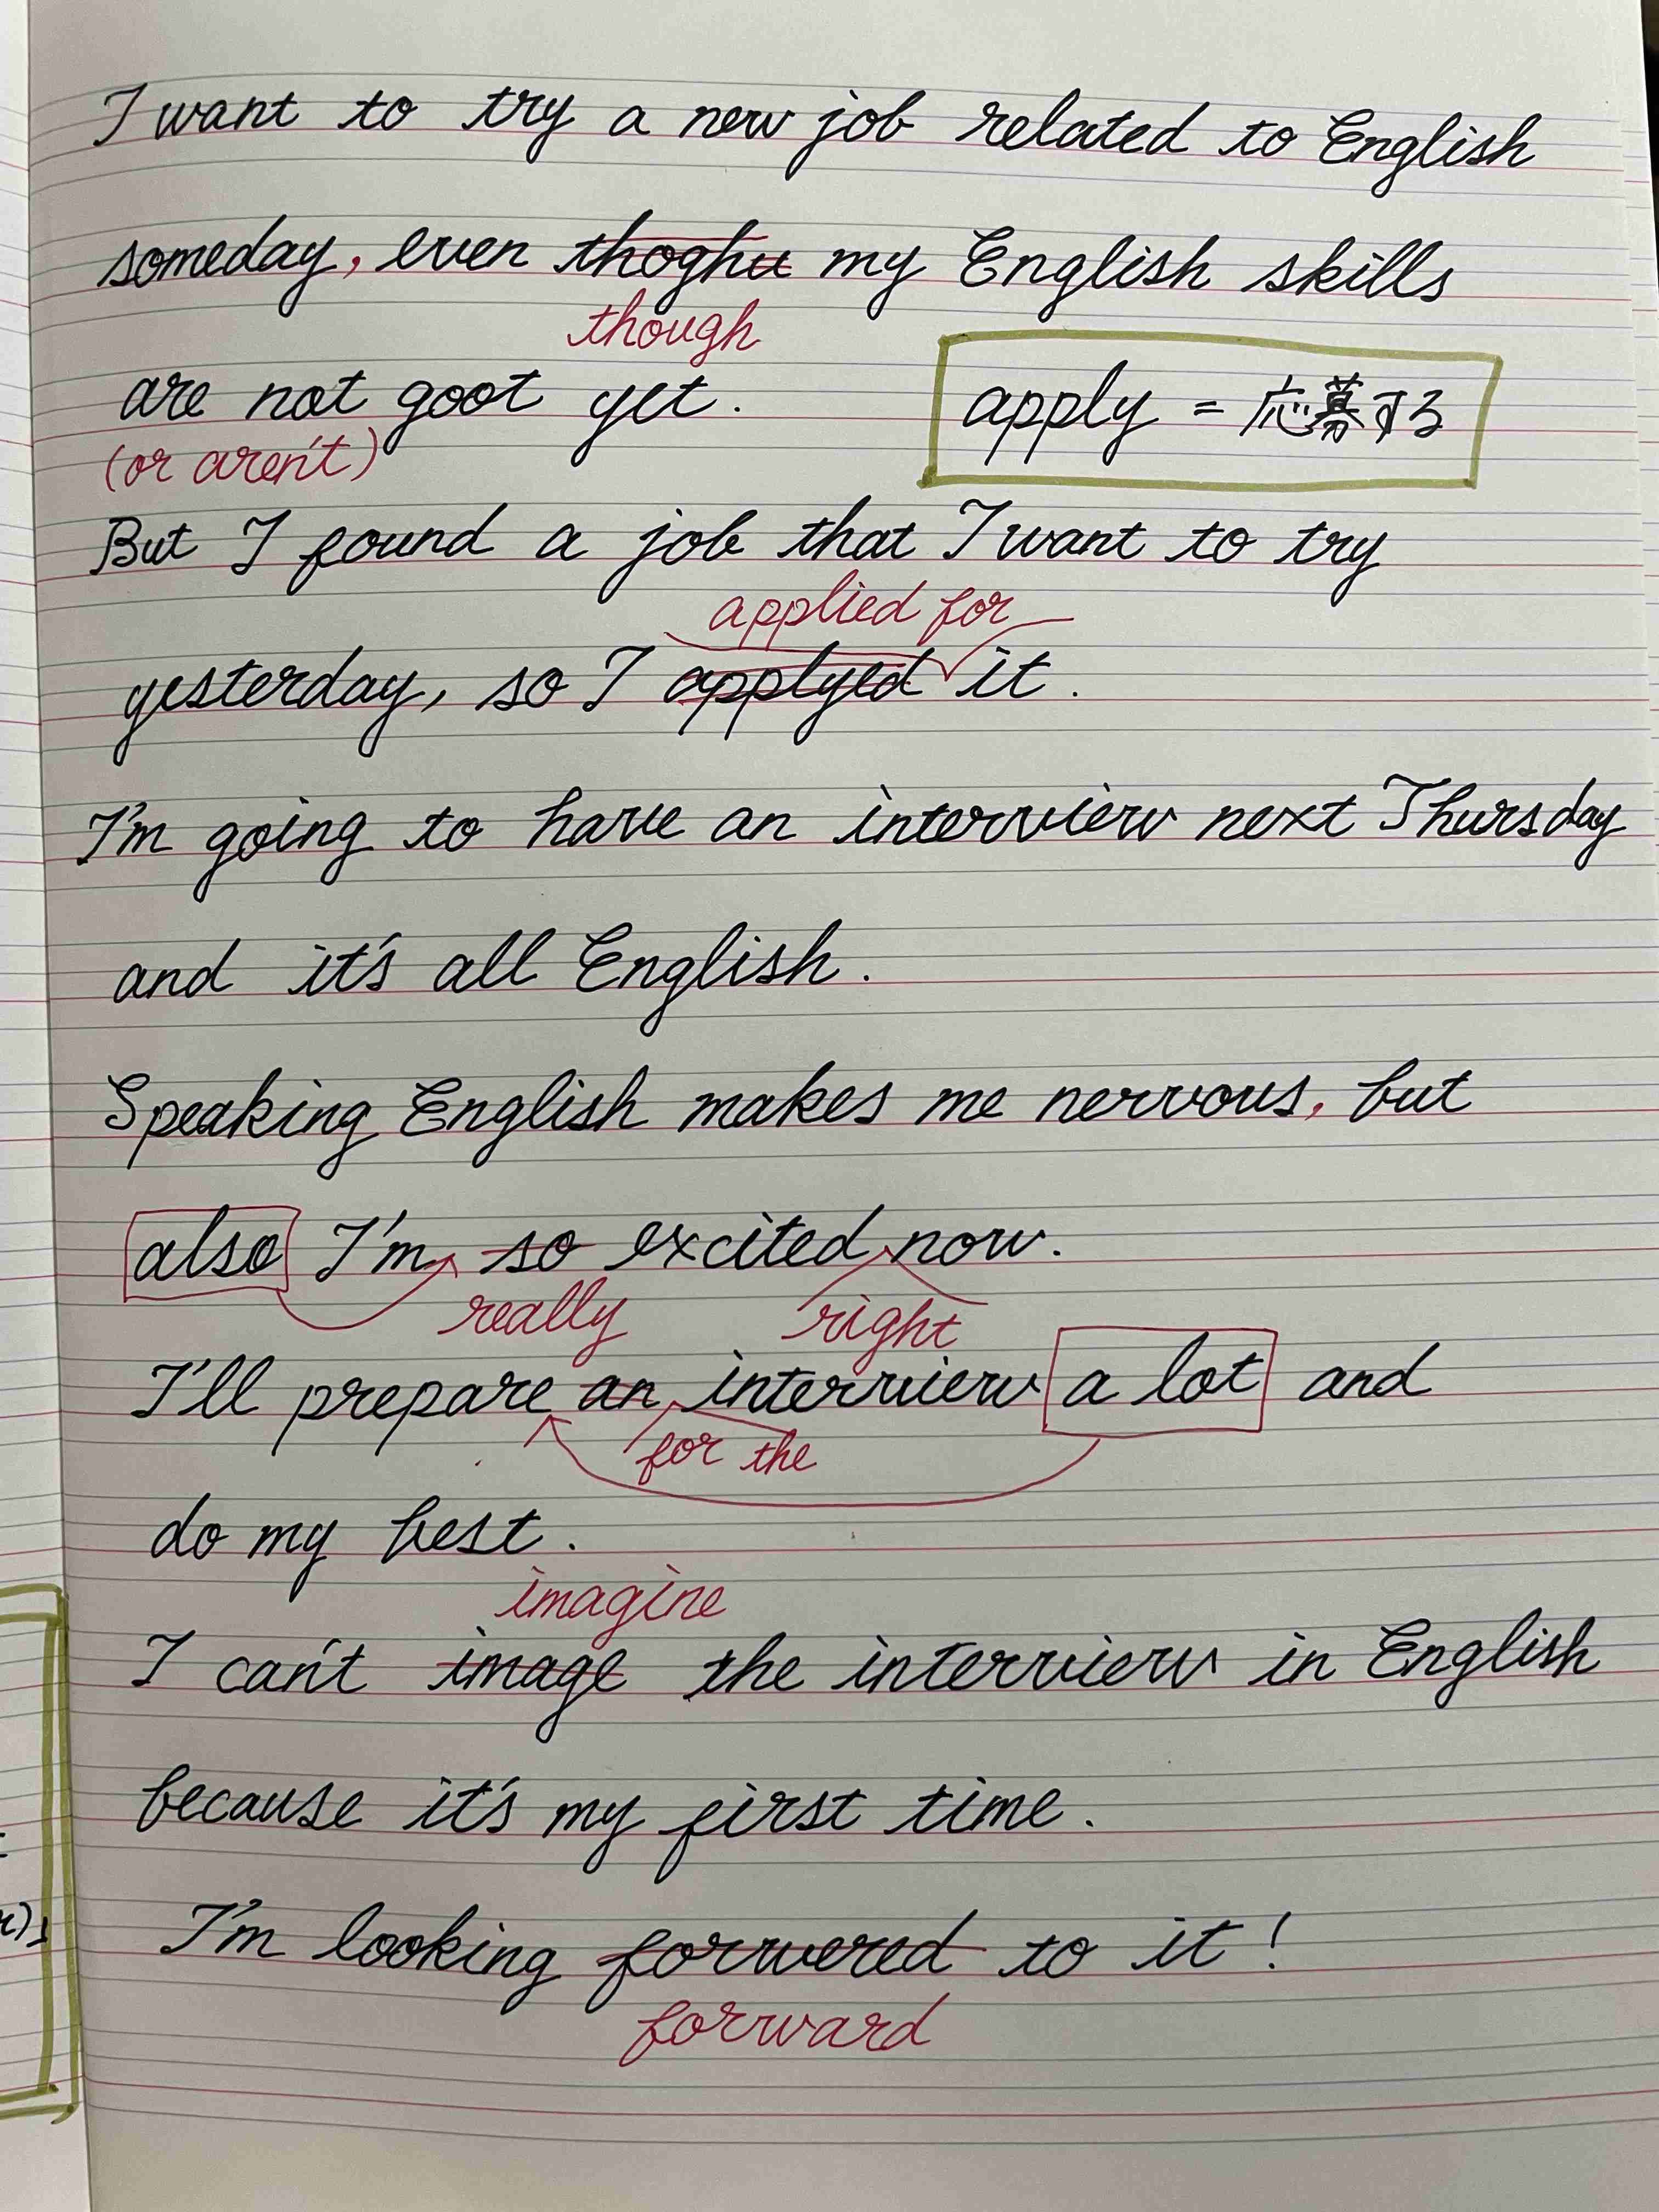 I want to try a new job related to English
someday, even thoghu my English skills
though
are not goot yet.
apply = 応募する
(or aren't)
But I found a job that I want to try
applied for
yesterday, so I applyed it.
I'm going to have an interview next Thursday
and it's all English.
Speaking English makes me nervous, but
also I'm so excited now.
really right
I'll prepare an interview a lot and
for the
do my best.
imagine
I can't image the interview in English
because it's my first time.
I'm looking forwered to it!
forward